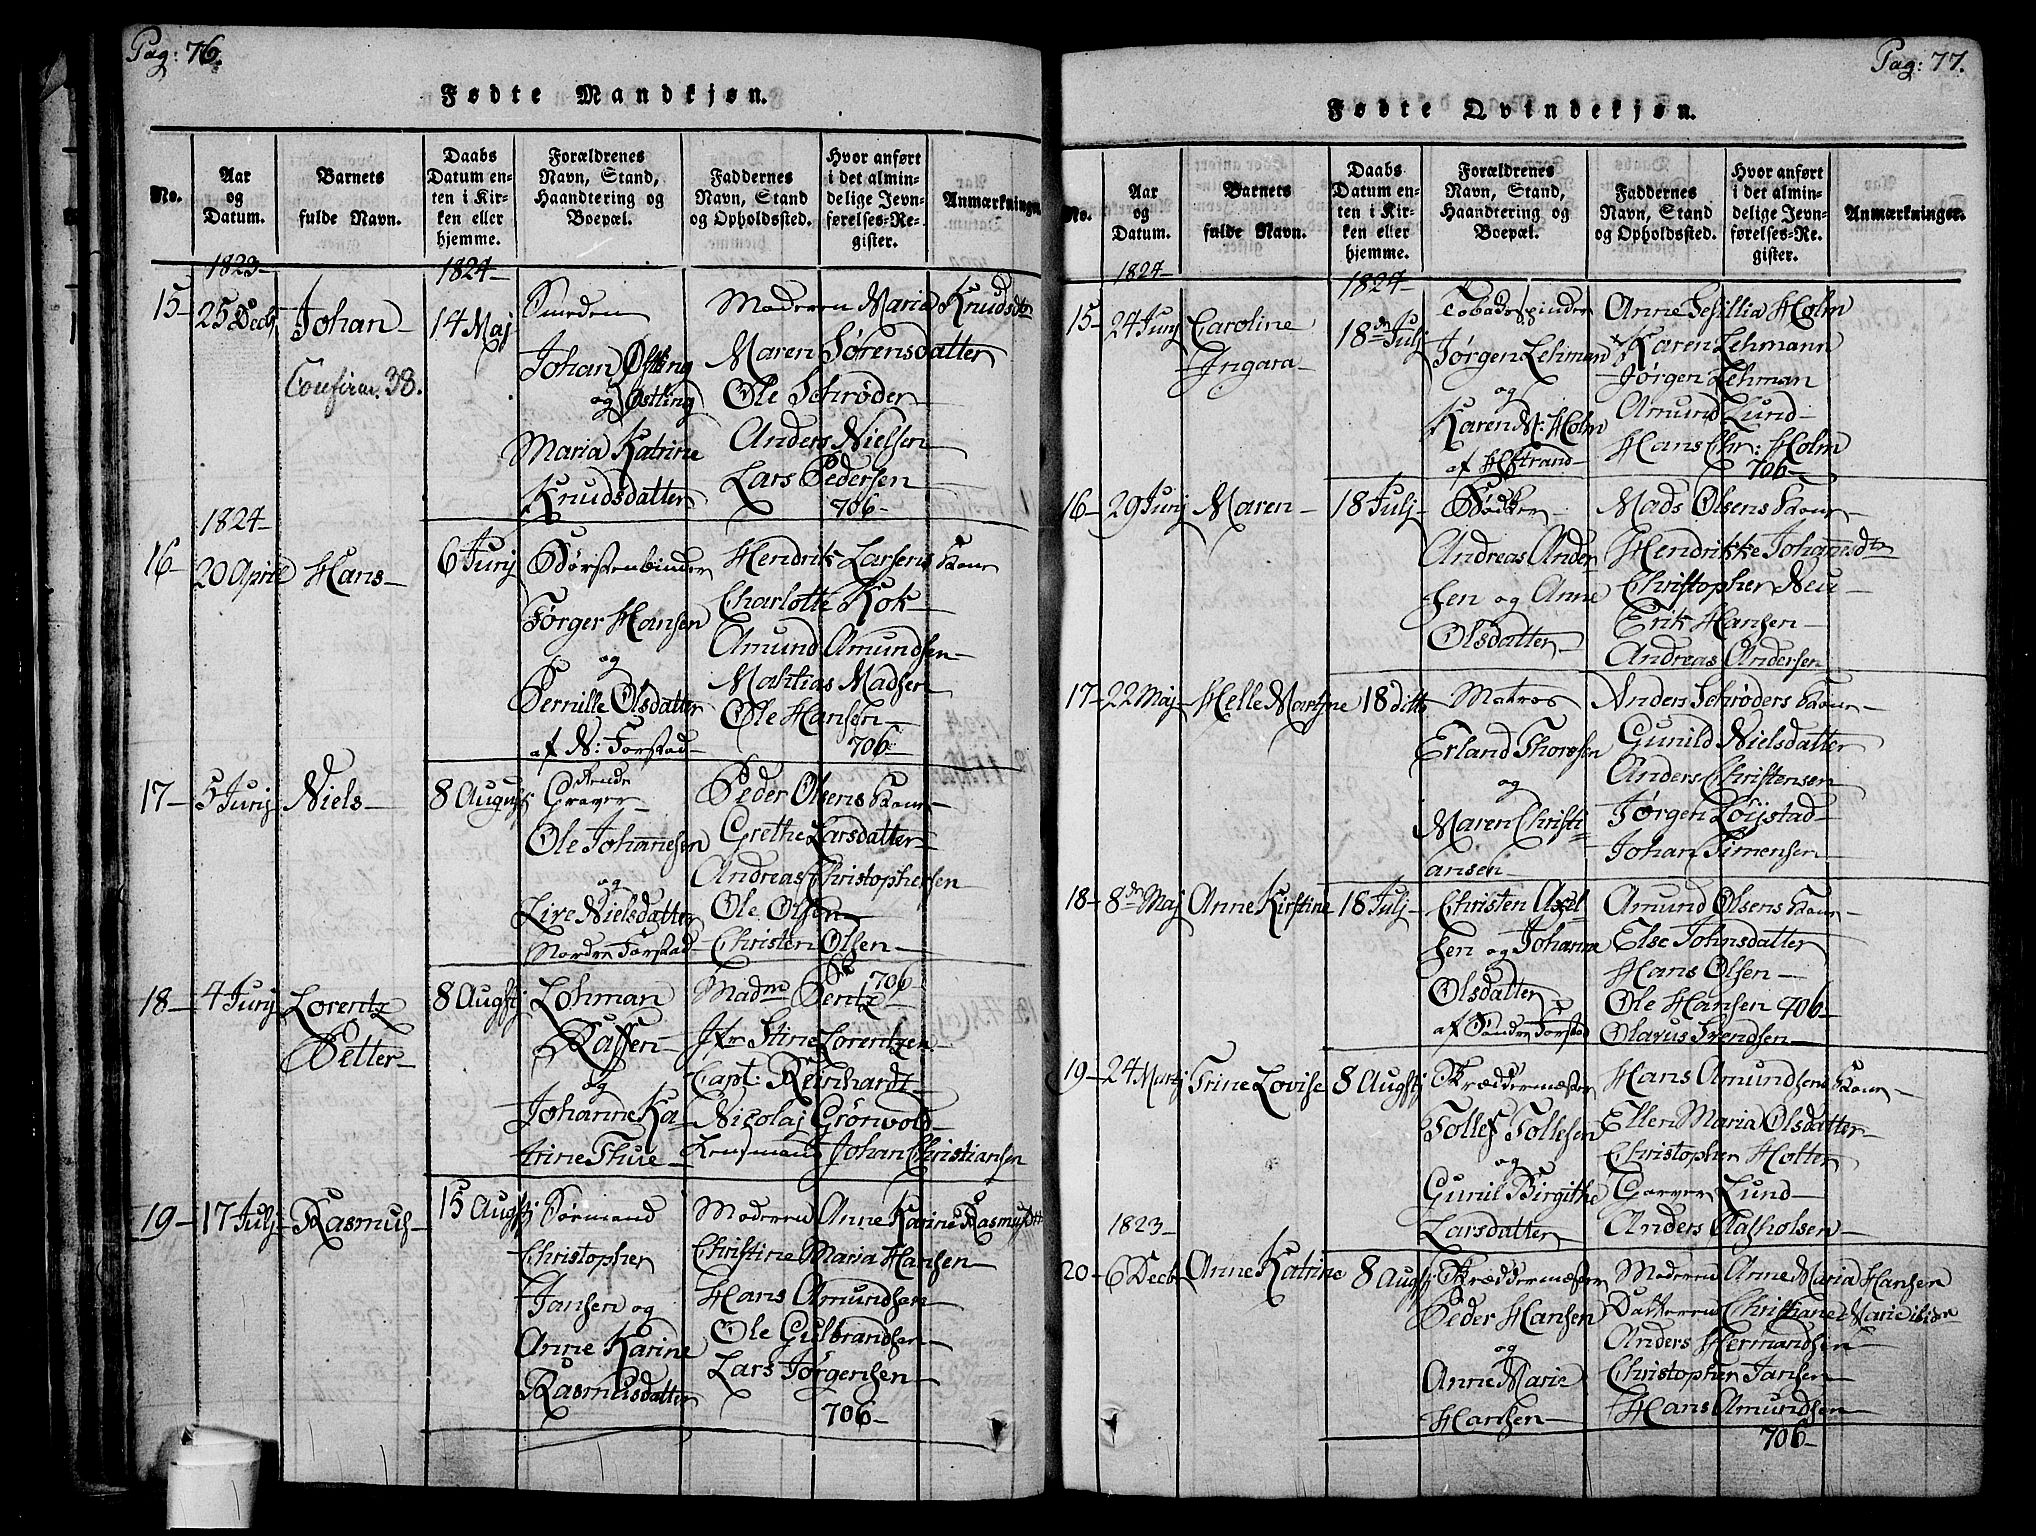 Pag: 76.
Fødte Mandkjøn.
No.
Aar og Datum.
Barnets fulde Navn.
Daabs Datum enten i Kirken eller hjemme.
Forældrenes Navn, Stand, Haandtering og Boepæl.
Faddernes Navn, Stand og Opholdssted.
Hvor anført i det almindelige Jevnførelses-Register.
Anmærkninger.
1823
1824
15 25 Decb Johan 14 Maj
Confirm. 38.
Smeden
Johan Østling
og Østling
Maria Katrine
Knudsdatter
Moderen Maria Knudsdtr
Maren Sørensdatter
Ole Schrøder
Anders Nielsen
Lars Pedersen
706
1824
16 20 April Hans 6 Junj
Børstenbinder
Jørger Hansen
og
Pernille Olsdatter
af N: Forstad
Hendrik Larsens Kone
Charlotte Kok
Amund Amundsen
Mathias Madsen
Ole Hansen
706
17 5 Junj Niels 8 August
Graver
Ole Johannesen
og
Live Nielsdatter
Nordre Forstad
Peder Olsens Kone
Grethe Larsdatter
Andreas Christophersen
Ole Olsen
Christen Olsen
706
18 4 Junj Lorentz 8 Augstj
Petter
Lohman
og
Johanne Ka
trine Thue
Madm Bentz
Jfr Stine Lorentzen
Capt: Reinhardt
Nicolaj Grønvold
Johan Christiansen
19 17 Julj Rasmus 15 Augstj
Sørmand
Christopher
Jansen og
Anne Karine
Rasmusdatter
Moderen Anne Karine Rasmusdtr
Christine Maria Hansen
Hans Amundsen
Ole Gulbrandsen
Lars Jørgensen
706
Pag: 77.
Fødte Qvindekjøn.
No.
Aar og Datum.
Barnets fulde Navn.
Daabs Datum enten i Kirken eller hjemme.
Forældrenes Navn, Stand, Haandtering og Boepæl.
Faddernes Navn, Stand og Opholdssted.
Hvor anført i det almindelige Jevnførelses-Register.
Anmærkninger.
1824
1824
15 24 Junj Caroline 18de Julj
Ingara
Tobakspinder
Jørgen Lehman
og
Karen N: Holm
af Hstrand
Anne Sesillia Holm
Karen Lehmann
Jørgen Lehman
Amund Lund
Hans Chr: Holm
706
16 29 Junj Maren 18 Julj
Bødker
Andreas Ander
sen og Anne
Olsdatter
Mads Olsens Kone
Hendrikke Johannesdtr
Christopher Neu
Erik Hansen
Andreas Andersen
17 22 Maj Helle Martine 18 ditto
Matros
Erland Thoresen
og
Maren Christi
ansen
Anders Schrøders Kone
Gunild Nielsdatter
Anders Christensen
Jørgen Løystad
Johan Simensen
18 8de Maj Anne Kirstine 18 Julj
Christen Axel
sen og Johanne
Olsdatter
af Søndre Forstad
Amund Olsens Kone
Else Johnsdatter
Hans Olsen
Ole Hansen 706
Olavus Svendsen
19 24 Martj Trine Lovise 8 Augstj
Skræddermester
Tollef Tollesen
og
Gunil Birgithe
Larsdatter
Hans Amundsens Kone
Ellen Maria Olsdatter
Christopher Holter
Garver Lund
Anders Aasholsen
1823
20 6 Decb Anne Katrine 8 Augstj
Skræddermester
Peder Hansen
og
Anne Marie
Hansen
Moderen Anne Maria Hansen
Datteren Christiane Marie
Anders Hermandsen
Christopher Jansen
Hans Amundsen
706